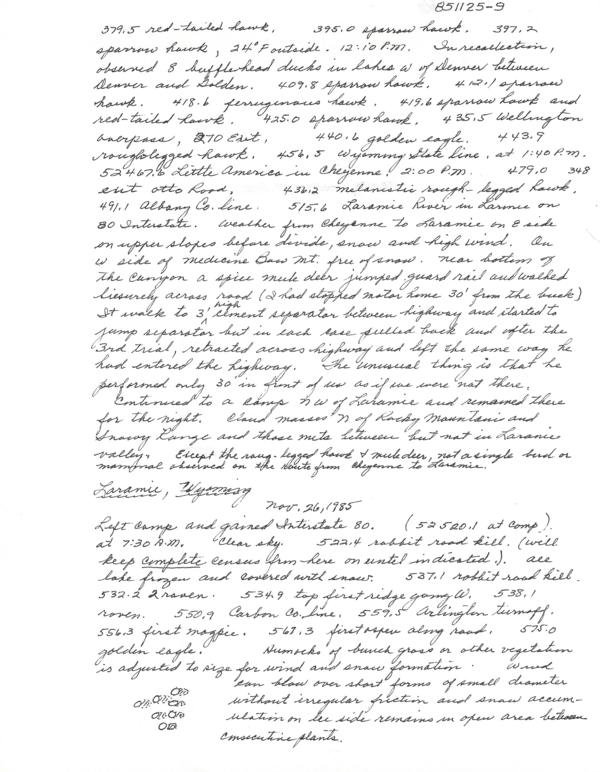 851125-9
379.5 red-tailed hawk. 395.0 sparrow hawk. 397.2
sparrow hawk, 24°F outside. 12:10 P.M. In recollection,
observed 8 bufflehead ducks in lakes W of Denver between
Denver and Golden. 409.8 sparrow hawk. 412.1 sparrow
hawk. 418.6 ferrugenous hawk. 419.6 sparrow hawk and
red-tailed hawk. 425.0 sparrow hawk. 435.5 Wellington
overpass, 270 Exit, 440.6 golden eagle. 443.9
roughlegged hawk. 456.5 Wyoming State line, at 1:40 P.M.
52467.6 Little America in Cheyenne, 2:00 P.M. 479.0 348
exit Otto Road, 436.2 melanistic rough-legged hawk.
491.1 Albany Co. line. 515.6 Laramie River in Larmie on
80 Interstate. Weather from Cheyenne to Laramie on E side
on upper slopes before divide, snow and high wind. On
W side of Medicine Bow Mt. free of snow. Near bottom of
the Canyon a spice mule deer jumped guard rail and walked
liesurely across road (I had stopped motor home 30' from the buck)
It walk to 3' high cement separator between highway and started to
jump separator but in each case pulled back and after the
3rd trial, retracted across highway and left the same way he
had entered the highway. The unusual thing is that he
performed only 30' in front of us as if we were not there.
Continued to a camp NW of Laramie and remained there
for the night. Cloud masses N of Rocky Mountain and
Snowy Range and those mts between but not in Laramie
valley. Except the roug-legged hawk & mule deer, not a single bird or
mammal observed on the route from Cheyenne to Laramie.
Laramie, Wyoming
Nov. 26, 1985
Left camp and gained Interstate 80. (52520.1 at camp).
at 7:30 A.M. Clear sky. 522.4 rabbit road kill. (will
keep complete census from here on until indicated.). All
lake frozen and covered with snow. 537.1 rabbit road kill.
532.2 2 raven. 534.9 top first ridge going W. 538.1
raven. 550.9 Carbon Co. line. 559.5 Arlington turnoff.
556.3 first magpie. 567.3 first aspen along road. 575.0
golden eagle. Humocks of bunch grass or other vegetation
is adjusted to size for wind and snow formation. Wind
can blow over short forms of small diameter
without irregular friction and snow accum-
ulation on lee side remains in open area between
consecutive plants.